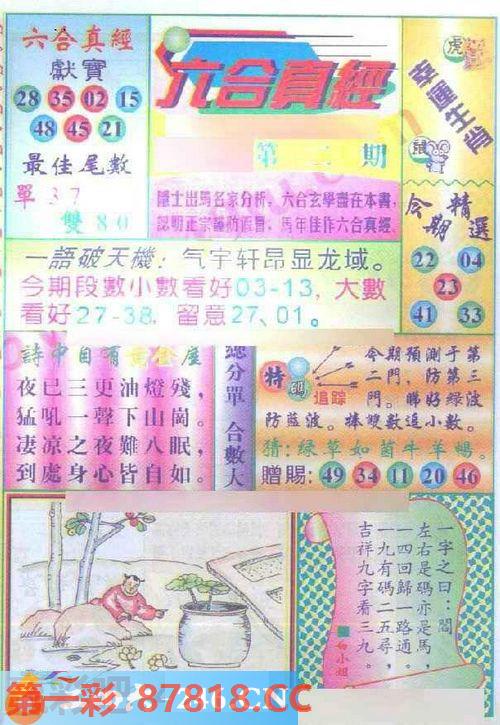 六合真經
獻寶
28 35 02 15
48 45 21
最佳尾數
單37
雙80
六合真經
第二期
隱士出馬名家分析，六合玄學盡在本書，
認明正宗謹防假冒，馬年佳作六合真經。
虎
幸運生肖
鼠
今期精選
22 04
23
41 33
一語破天機：气宇轩昂显龙域。
今期段數小數看好03-13，大數
看好27-38，留意27、01。
詩中自有黃金屋
夜已三更油燈殘，
猛吼一聲下山崗。
淒凉之夜難入眠，
到處身心皆自如。
總分單 合數大
特碼
追踪
今期預測于第
二門，防第三
門。睇好綠波
防藍波。棒雙數追小數。
猜：綠草如茵牛羊暢。
贈賜：49 34 11 20 46
一字之曰：閭
左右是碼亦是馬，
一四回歸一路通。
一九有碼二五尋，
吉祥九字看三九。
白小姐
第一彩 87818.CC
246.CN